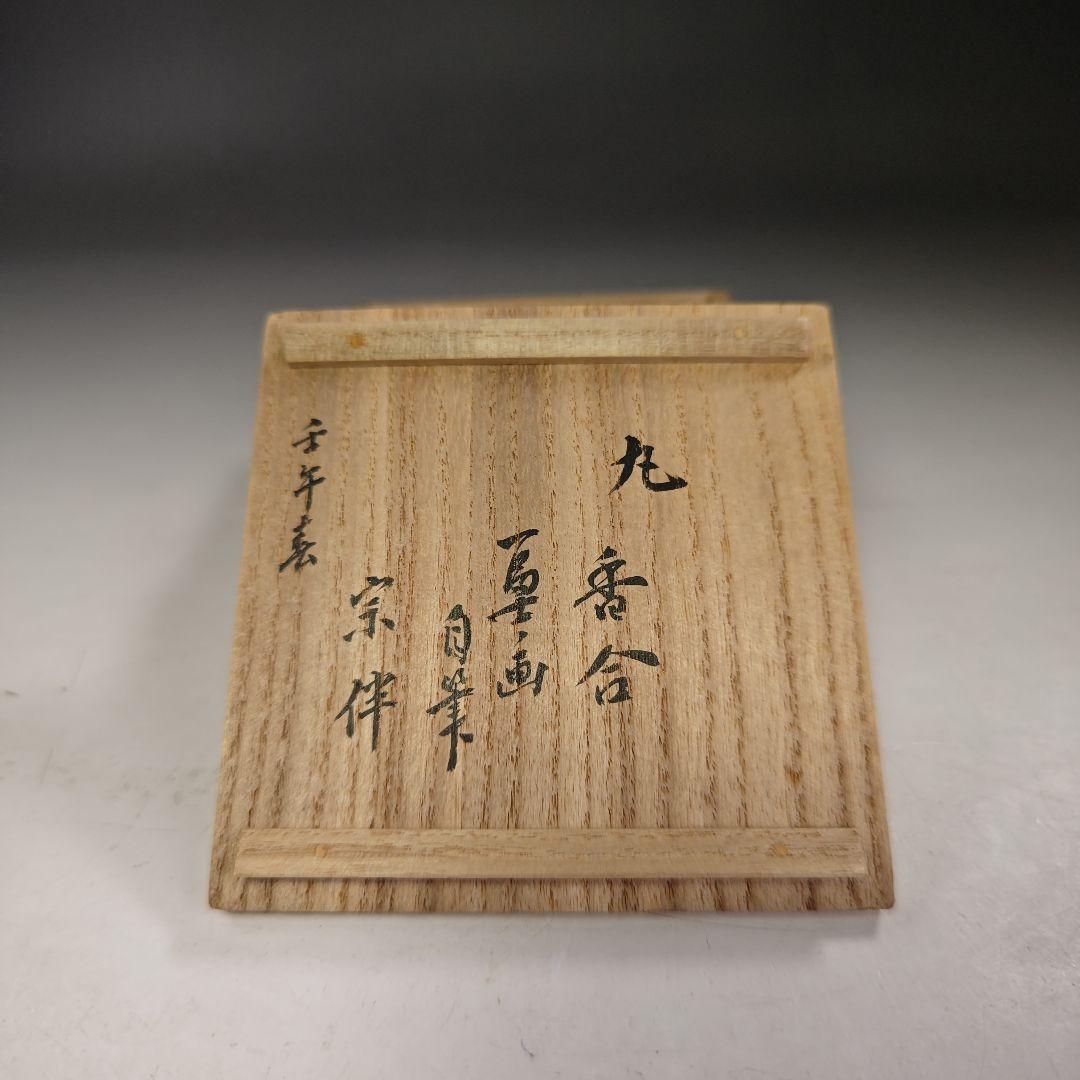 丸
香合
画
自筆
宗伴
壬午春